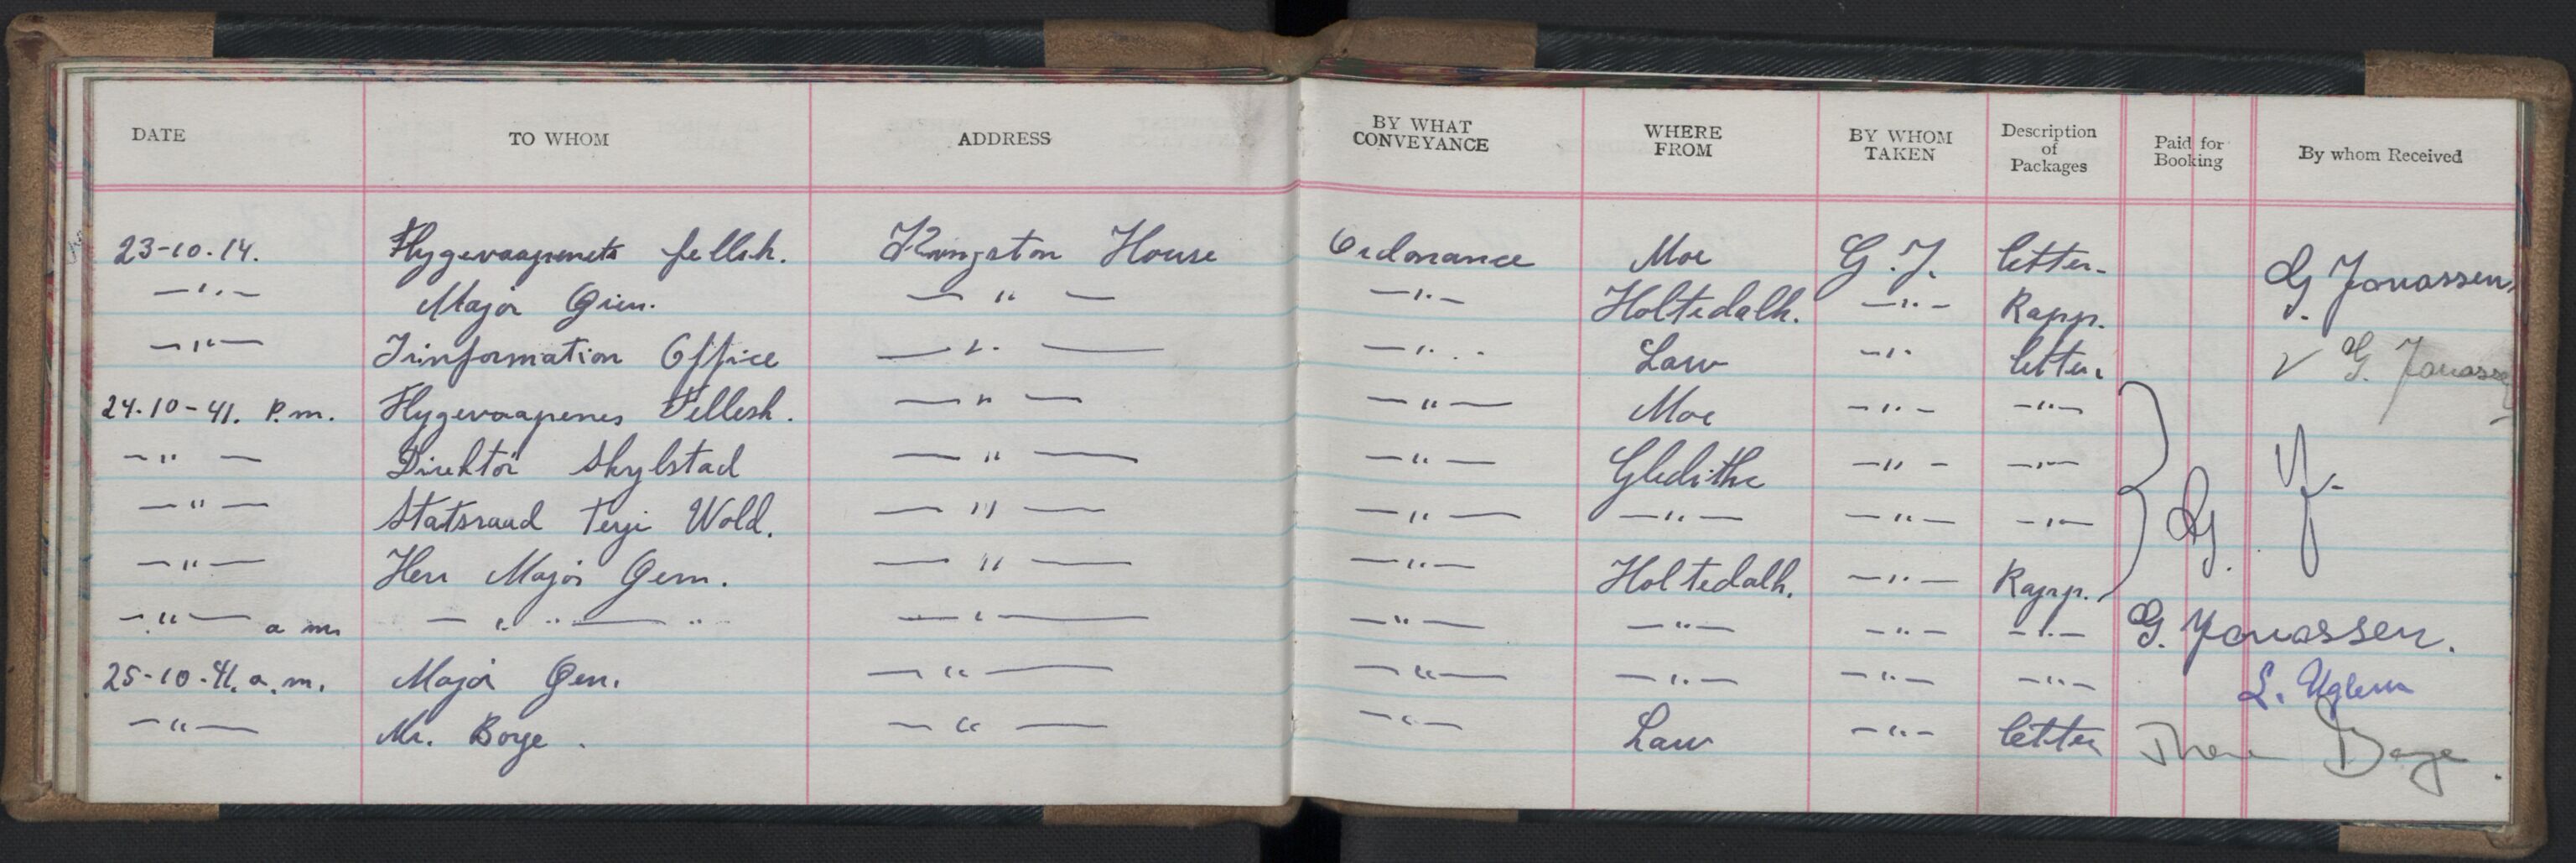 DATE TO WHOM ADDRESS BY WHAT CONVEYANCE WHERE FROM BY WHOM TAKEN Description of Packages Paid for Booking By whom Received
23-10.14. Flygevaapnets fellsk. Kingston House Ordonance Moe G.J. letter. G. Jonassen,
—"— Major —"— —"— Holtedalh. —"— Rapp.
—"— Iinformation Office —"— —"— Law —"— letter. V G. Jonassen
24.10-41. P.m. Flygevaapenes Fellesk. —"— —"— Moe —"— —"—
—"— Direktör Skylstad —"— —"— Gleditche —"— —"—
—"— Statsraad Terje Wold. —"— —"— —"— —"— —"— G.
—"— Herr Major —"— —"— Holtedalh. —"— Rapp.
—"— a m —"— " —"— —"— —"— —"— —"— G. Jonassen.
25-10-41. a.m. Major —"— —"— —"— —"— —"— L. Uglem
—"— Mr. Boye. —"— —"— Law —"— letter Boye.